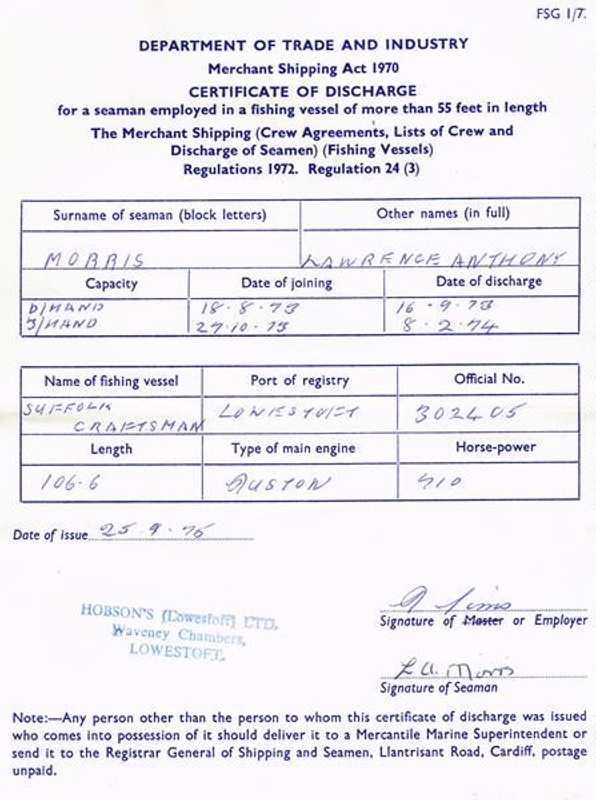 FSG 1/7
DEPARTMENT OF TRADE AND INDUSTRY
Merchant Shipping Act 1970
CERTIFICATE OF DISCHARGE
for a seaman employed in a fishing vessel of more than 55 feet in length
The Merchant Shipping (Crew Agreements, Lists of Crew and
Discharge of Seamen) (Fishing Vessels)
Regulations 1972. Regulation 24 (3)
Surname of seaman (block letters) Other names (in full)
MORRIS LAWRENCE ANTHONY
Capacity Date of joining Date of discharge
D/HAND 18.8.73 16.9.73
27.10.73 8.2.74
Name of fishing vessel Port of registry Official No.
SUFFOLK LOWESTOFT 302405
CRAFTSMAN
Length Type of main engine Horse-power
106.6 RUSTON 710
Date of issue 25.9.75
HOBSON'S (Lowestoft) LTD,
Waveney Chambers,
LOWESTOFT.
Sims
Signature of Master or Employer
L A. Morris
Signature of Seaman
Note:—Any person other than the person to whom this certificate of discharge was issued
who comes into possession of it should deliver it to a Mercantile Marine Superintendent or
send it to the Registrar General of Shipping and Seamen, Llantrisant Road, Cardiff, postage
unpaid.